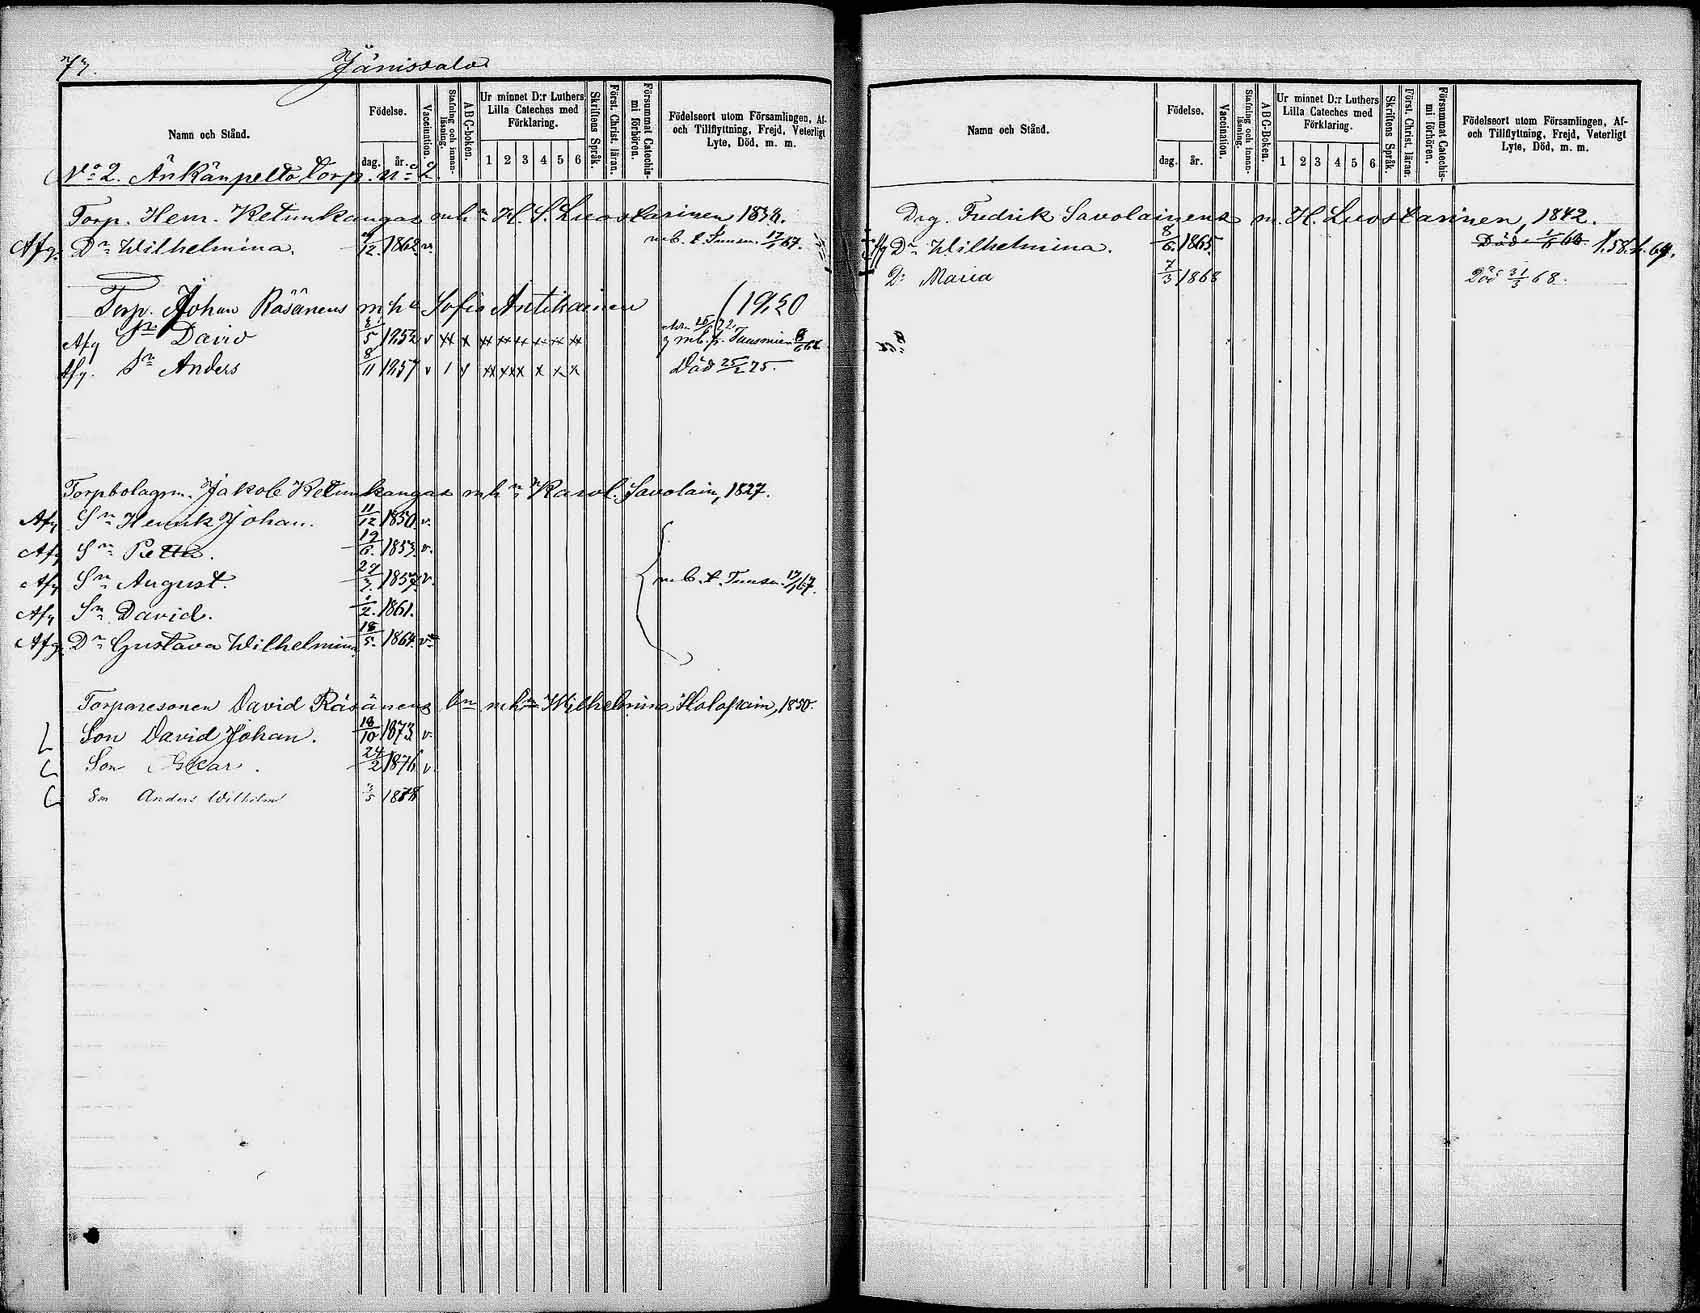 73. Jänissalo
Namn och Stånd.
Födelse.
dag. år.
Vaccination.
Stafning och innanläsning.
ABC-boken.
Ur minnet D:r Luthers Lilla Cateches med Förklaring.
1 2 3 4 5 6
Skriftens Språk.
Först. Christ. läran.
Försummat Catechismi förhören.
Födelseort utom Församlingen, Af- och Tillflyttning, Frejd, Veterligt Lyte, Död, m. m.
No 2. Änkänpelto torp. No 2
Torp. Henr. Ketunkangas m h n H. S. Luostarinen 1834.
Afg. Dr Wilhelmina. /12 1862 v. m b. t. Tuusn. 17/67.
Torp. Johan Räsänens m h u Sofia Antikainen (19,20
Afg Sn David /5 1852 v xx x xx xx x x x x 25/ 72 m b. fr. Tuusniemi 8/6 66
Afg. Sn Anders 8/11 1857 v 1 x xx x x x x x x Död 25/2 75.
Torpbolagsm. Jakob Ketunkangas m h n Karol. Savolain, 1827.
Afg Sn Henrik Johan. 11/12 1850 v.
Afg Sn Petter. 19/6. 1853. v.
Afg Sn August. 29/3. 1857. v. m b. t. Tuusn. 17/67.
Afg Sn David. 1/2. 1861.
Afg. Dr Gustava Wilhelmina 18/5. 1864. v.
Torparesonen David Räsänens m hn Wilhelmina Holopain, 1850.
Son David Johan. 18/10 1873 v.
Son Oskar. 24/2 1876 v
Son Anders Wilhelm /5 1878
Namn och Stånd.
Födelse.
dag. år.
Vaccination.
Stafning och innanläsning.
ABC-Boken.
Ur minnet D:r Luthers Lilla Cateches med Förklaring.
1 2 3 4 5 6
Skriftens Språk.
Först. Christ. läran.
Försummat Catechismi förhören.
Födelseort utom Församlingen, Af- och Tillflyttning, Frejd, Veterligt Lyte, Död, m. m.
Drg. Fredrik Savolainens m. H. Luostarinen, 1842.
Afg Dr Wilhelmina. 8/6. 1865. Död 1/6 68. f. 58. h. 69.
D: Maria 7/3 1868 Död 31/5 68.